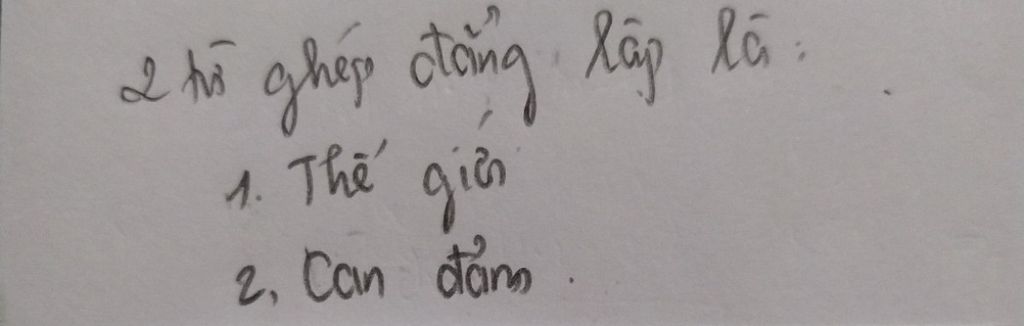 2 từ ghép đẳng lập là:
1. Thế giới
2, Can đảm.